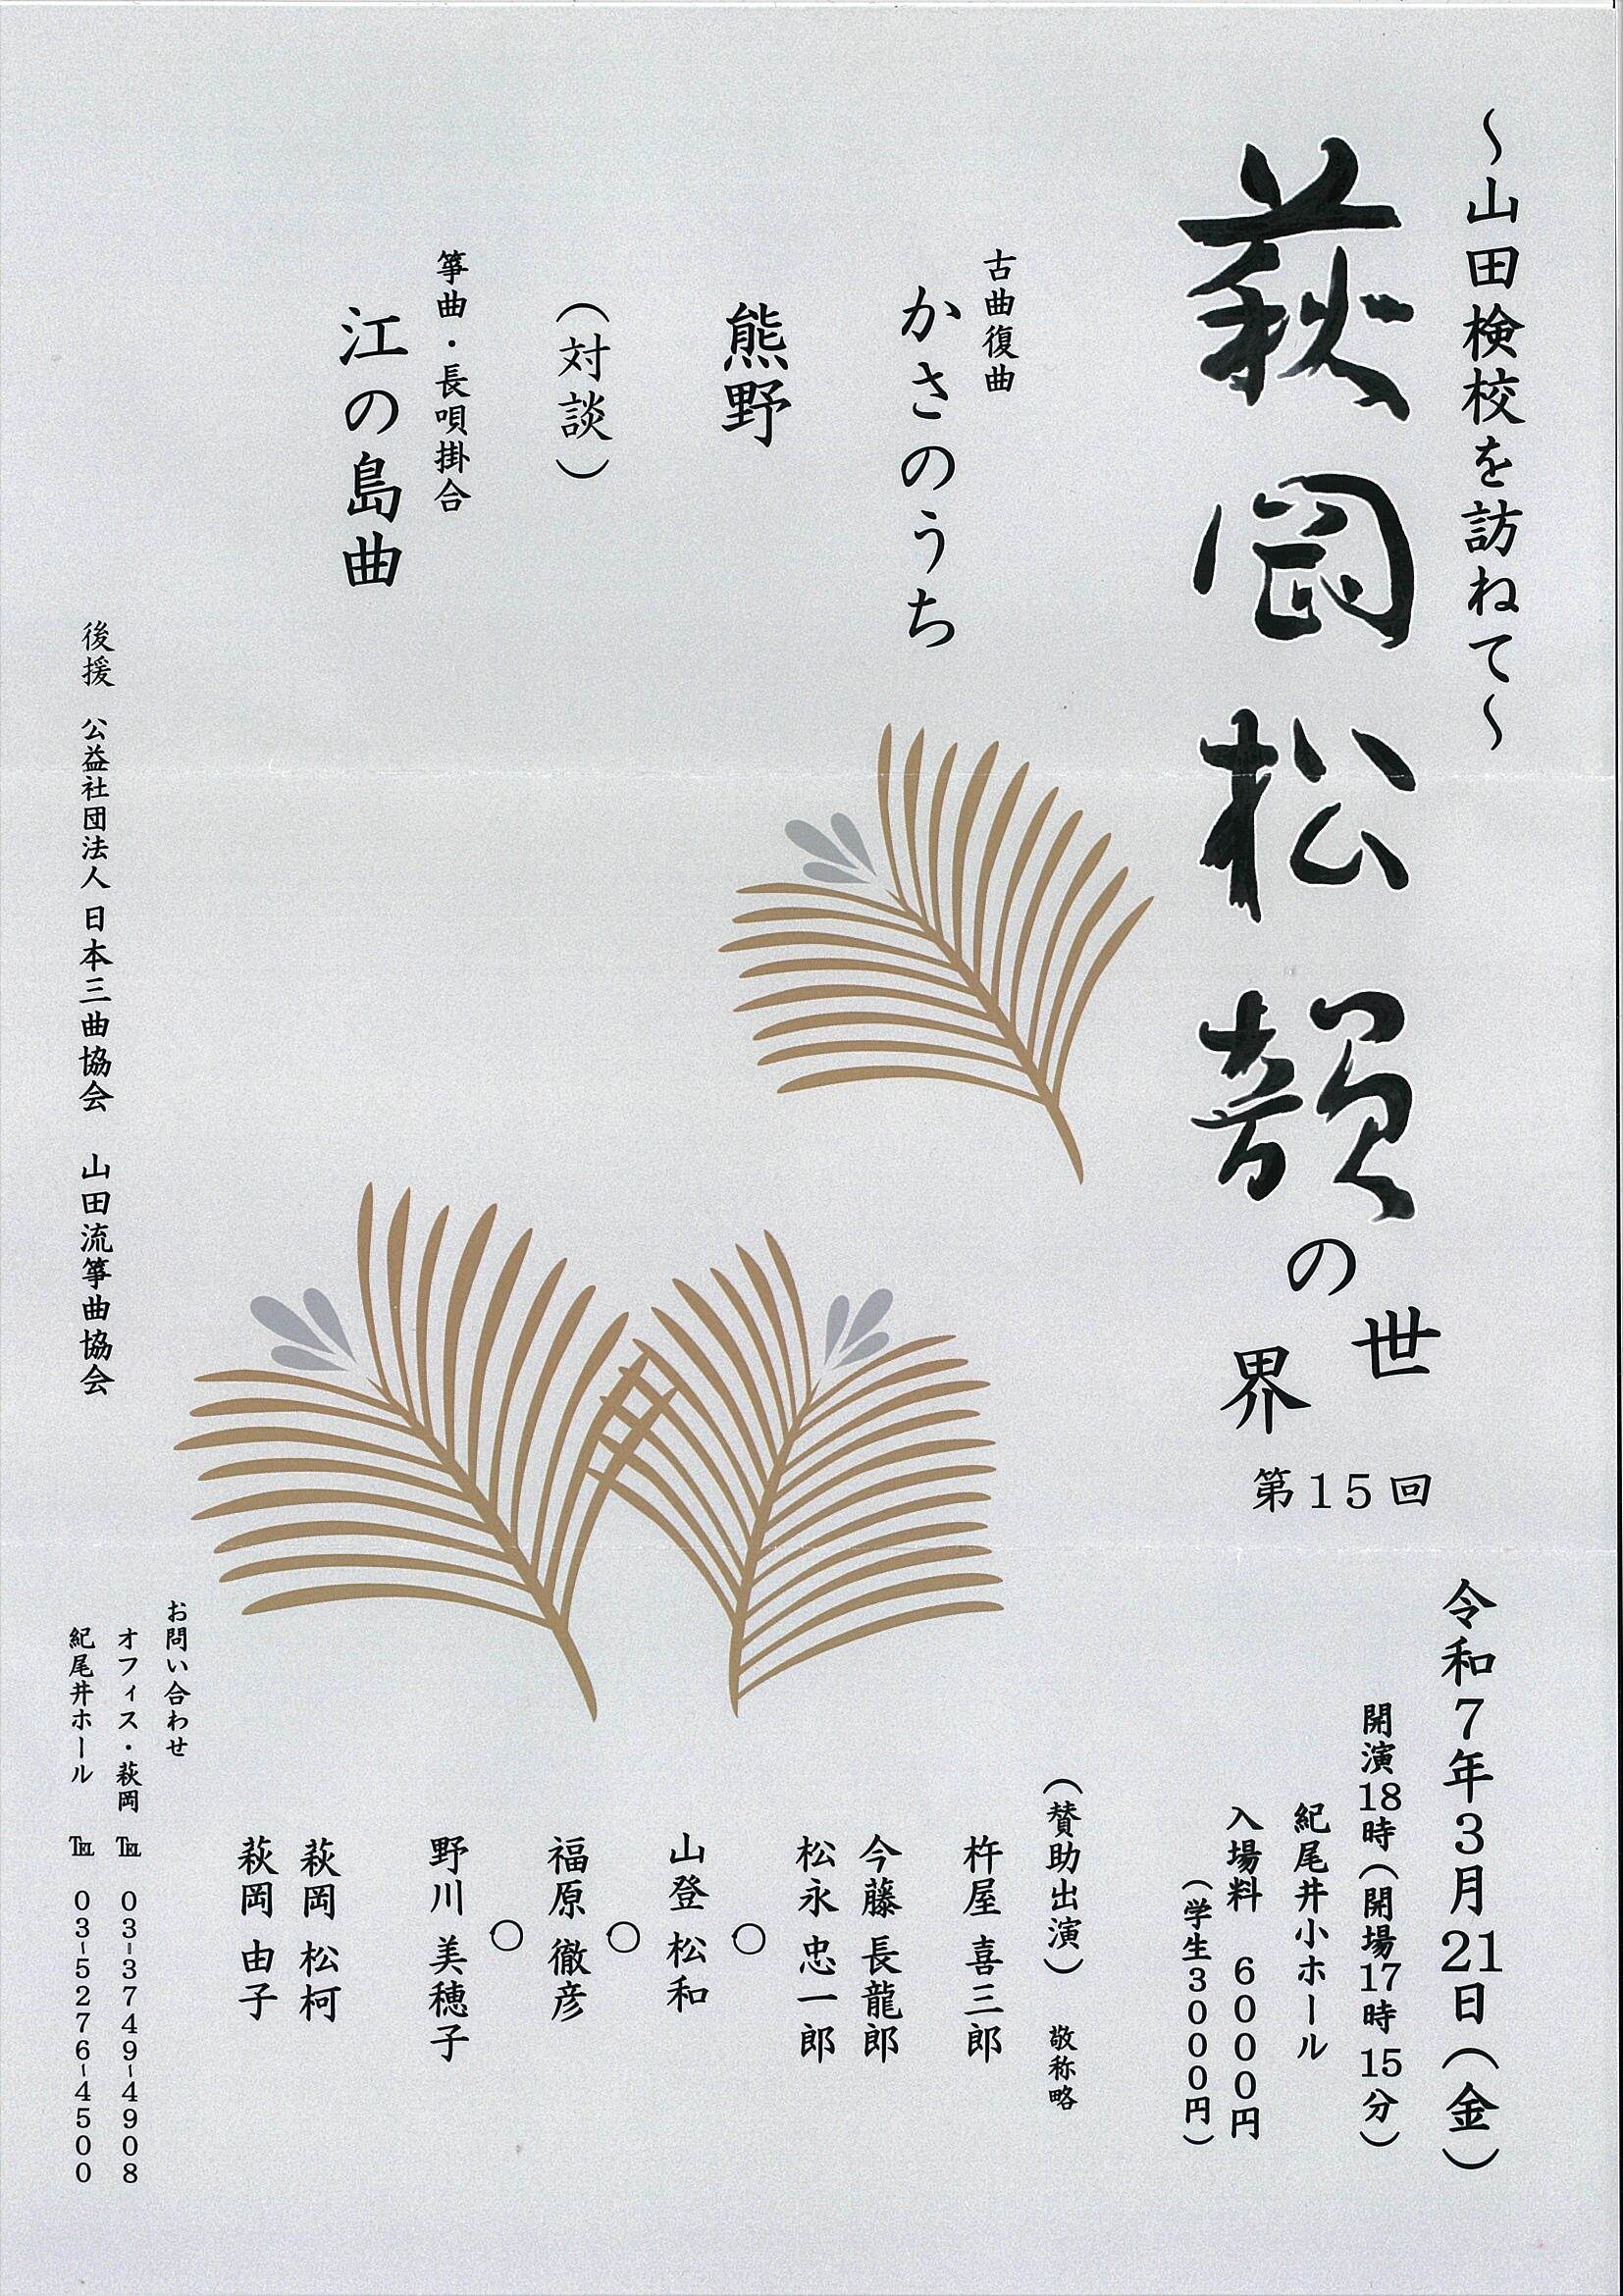 ～山田検校を訪ねて～
萩岡松韻の世界
第15回
令和7年3月21日（金）
開演18時（開場17時15分）
紀尾井小ホール
入場料 6000円
（学生3000円）
古曲復曲
かさのうち
熊野
（対談）
箏曲・長唄掛合
江の島曲
（賛助出演） 敬称略
杵屋 喜三郎
今藤 長龍郎
松永 忠一郎
○
山登 松和
○
福原 徹彦
○
野川 美穂子
萩岡 松柯
萩岡 由子
後援 公益社団法人 日本三曲協会 山田流箏曲協会
お問い合わせ
オフィス・萩岡 ℡ 03-3749-4908
紀尾井ホール ℡ 03-5276-4500